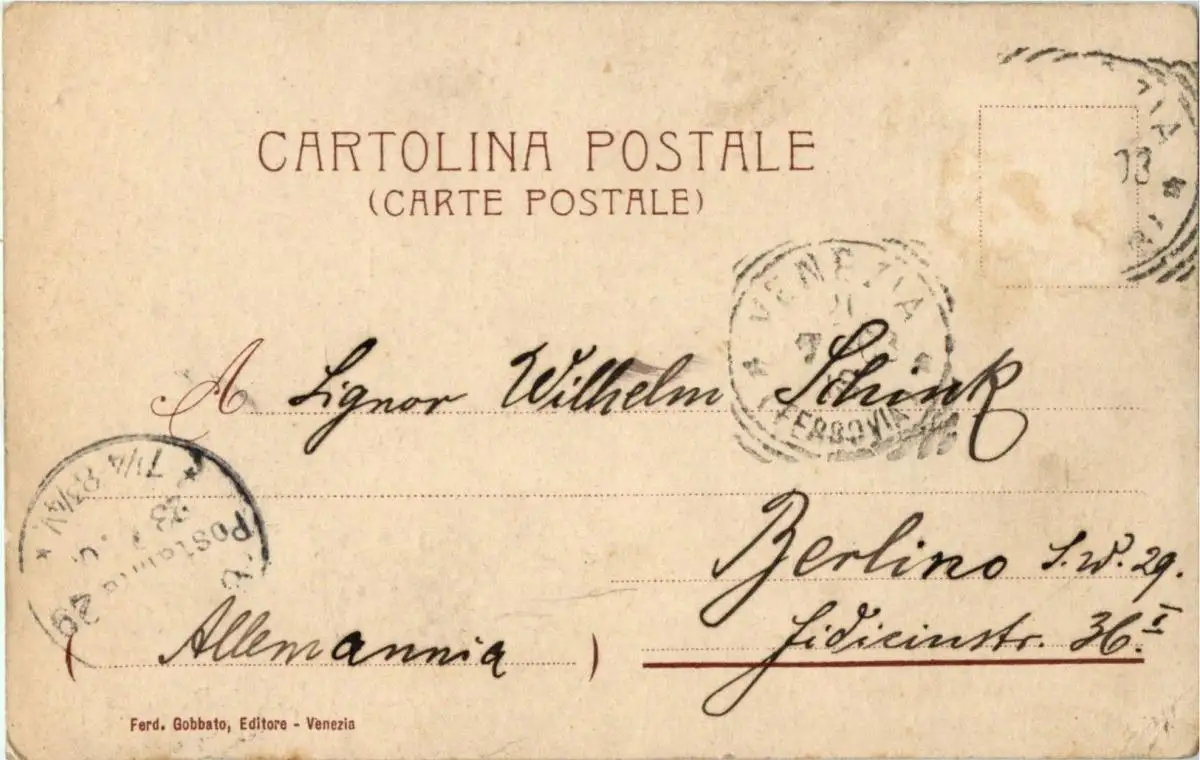 CARTOLINA POSTALE
(CARTE POSTALE)
VENEZIA
FERROVIA
03
A Signor Wilhelm Schink
Berlino S.W. 29.
Fidicinstr. 36.I
(Allemannia)
Postamt 29
7¼-8¾V.
23
Ferd. Gobbato, Editore - Venezia